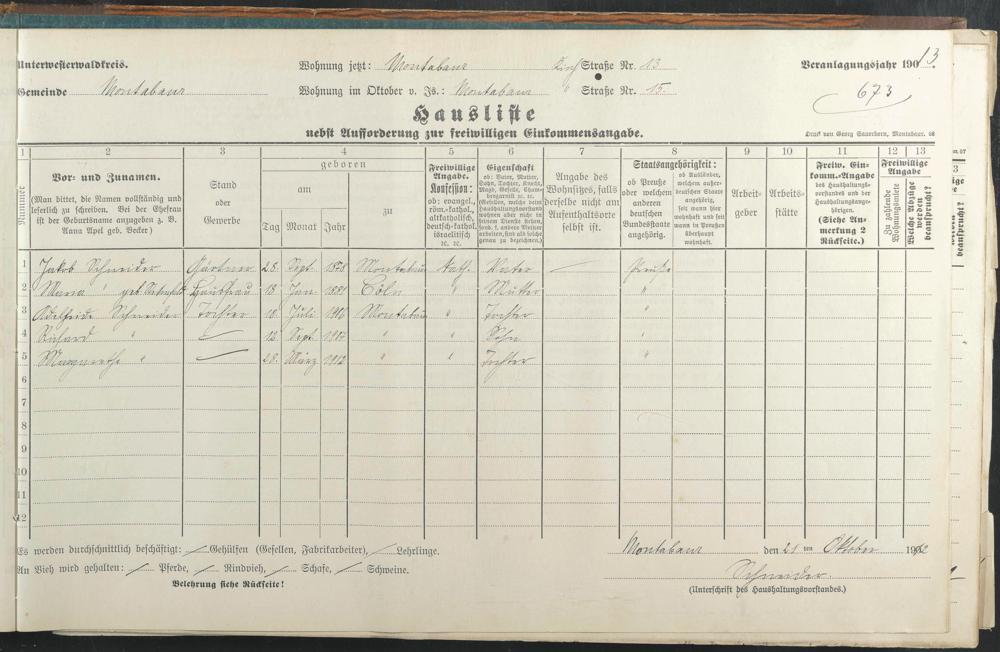 Unterwesterwaldkreis. Wohnung jetzt: Montabaur Straße Nr. 13 Veranlagungsjahr 1913.
Gemeinde Montabaur Wohnung im Oktober v. Js.: Montabaur Straße Nr. 15. 673
Hausliste
nebst Aufforderung zur freiwilligen Einkommensangabe.
Druck von Georg Sauerborn, Montabaur.
1 2 3 4 5 6 7 8 9 10 11 12 13
Nummer
Vor- und Zunamen.
(Man bittet, die Namen vollständig und
leserlich zu schreiben. Bei der Ehefrau
ist der Geburtsname anzugeben z. B.
Anna Apel geb. Becker)
Stand
oder
Gewerbe
geboren
am zu
Tag Monat Jahr
Freiwillige
Angabe.
Konfession:
ob: evangel.,
röm.-kathol.,
altkatholisch,
deutsch-kathol.
israelitisch
ec. ec.
Eigenschaft
ob: Vater, Mutter,
Sohn, Tochter, Knecht,
Angabe des
Wohnsitzes, falls
derselbe nicht am
Aufenthaltsorte
selbst ist.
Staatsangehörigkeit:
ob Preuße
oder welchem
anderen
deutschen
Bundesstaate
angehörig.
ob Ausländer,
welchem außer-
deutschen Staate
angehörig,
seit wann hier
wohnhaft und seit
wann in Preußen
überhaupt
wohnhaft.
Arbeit-
geber
Arbeits-
stätte
Freiw. Ein-
komm.-Angabe
des Haushaltungs-
vorstandes und der
Haushaltungsange-
hörigen.
(Siehe An-
merkung 2
Rückseite.)
Freiwillige
Angabe
Zu zahlende
Wohnungsmiete
Welche Abzüge
werden
beansprucht?
1 Jakob Schneider Gärtner 28. Sept. 1878 Montabaur Kath. Vater — Preuße
2 Maria " geb. Hausfrau 18 Jan. 1881 Cöln " Mutter "
3 Adelheide Schneider Tochter 10 Juli Montabaur " Tochter "
4 Richard " — 12. Sept. " " Sohn "
5 Margarethe " — 28. März 1912 " " Tochter "
6
7
8
9
10
11
12
Es werden durchschnittlich beschäftigt: Gehülfen (Gesellen, Fabrikarbeiter), Lehrlinge.
An Vieh wird gehalten: Pferde, Rindvieh, Schafe, Schweine.
Belehrung siehe Rückseite!
Montabaur den 21 ten Oktober 1912
Schneider.
(Unterschrift des Haushaltungsvorstandes.)